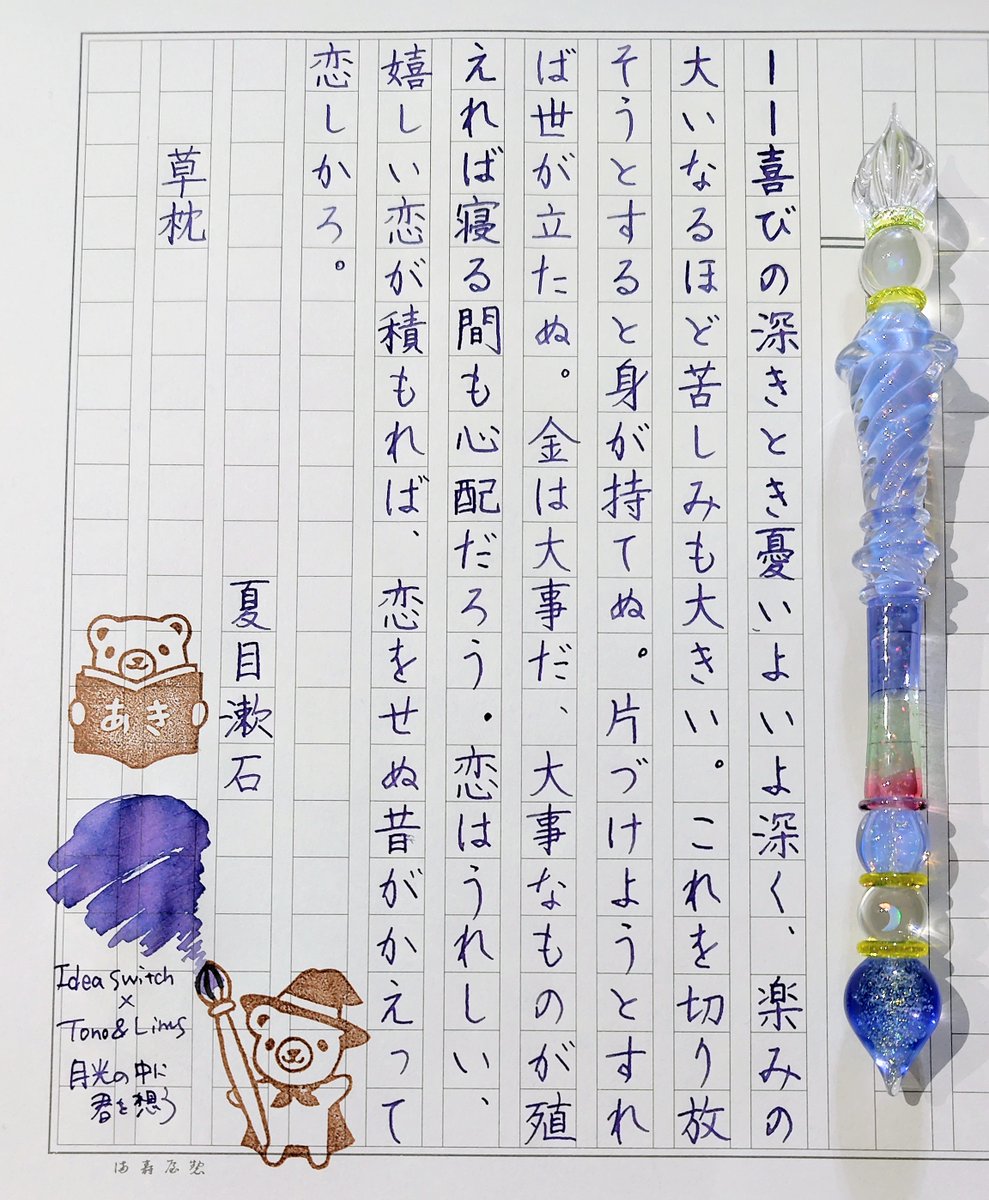 ーー喜びの深きとき憂いよいよ深く、楽みの
大いなるほど苦しみも大きい。これを切り放
そうとすると身が持てぬ。片づけようとすれ
ば世が立たぬ。金は大事だ、大事なものが殖
えれば寝る間も心配だろう・恋はうれしい、
嬉しい恋が積もれば、恋をせぬ昔がかえって
恋しかろ。
夏目漱石
草枕
あき
Idea Switch
×
Tono&Lims
月光の中に
君を想う
満寿屋製